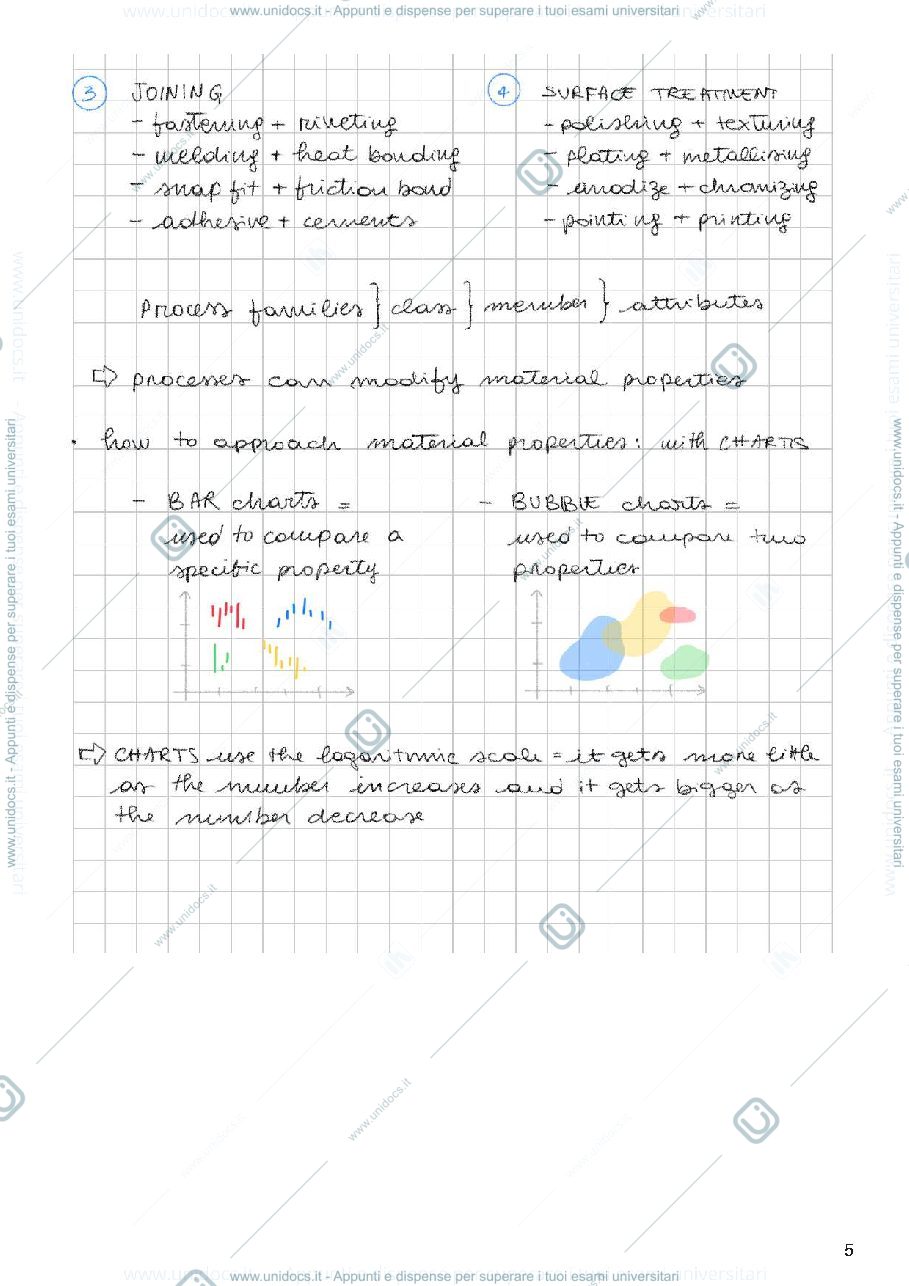 www.unidocs.it - Appunti e dispense per superare i tuoi esami universitari
3 JOINING
- fastening + riveting
- welding + heat bonding
- snap fit + friction bond
- adhesive + cements
4 SURFACE TREATMENT
- polishing + texturing
- plating + metallising
- anodize + chromizing
- pointing + printing
Process families } class } member } attributes
⇨ processes can modify material properties
• how to approach material properties: with CHARTS
- BAR charts =
used to compare a
specific property
- BUBBLE charts =
used to compare two
properties
⇨ CHARTS use the logaritmic scale = it gets more little
as the number increases and it gets bigger as
the number decrease
5
www.unidocs.it - Appunti e dispense per superare i tuoi esami universitari
www.unidocs.it - Appunti e dispense per superare i tuoi esami universitari
www.unidocs.it - Appunti e dispense per superare i tuoi esami universitari
www.unidocs.it